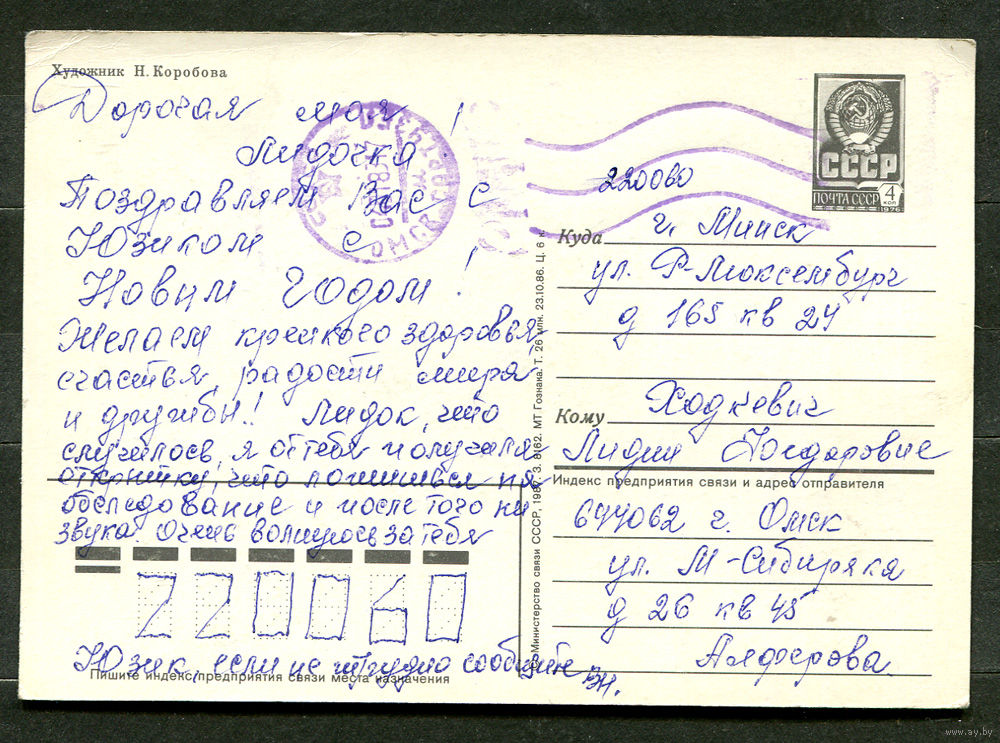 Художник Н. Коробова
Дорогая моя
Лидочка!
Поздравляем Вас с
Юзиком с
Новым Годом!
Желаем крепкого здоровья,
счастья, радости мира
и дружбы! Лидок, что
случилось, я от тебя получила
открытку, что ложишься на
обследование и после того ни
звука. Очень волнуюсь за тебя
220060
Юзик, если не трудно сообщите
Пишите индекс предприятия связи места назначения
СССР
ПОЧТА СССР
4 коп
1976
ОМСК
220060
Куда г. Минск
ул. Р-Люксембург
д 165 кв 24
Кому Ходкевич
Лидии
Индекс предприятия связи и адрес отправителя
644062 г. Омск
ул. М-Сибиряка
д 26 кв 45
Алферова
Министерство связи СССР, 1987. З. 8162. МТ Гознака. Т. 26 млн. 23.10.86. Ц. 6 к.
www.ay.by